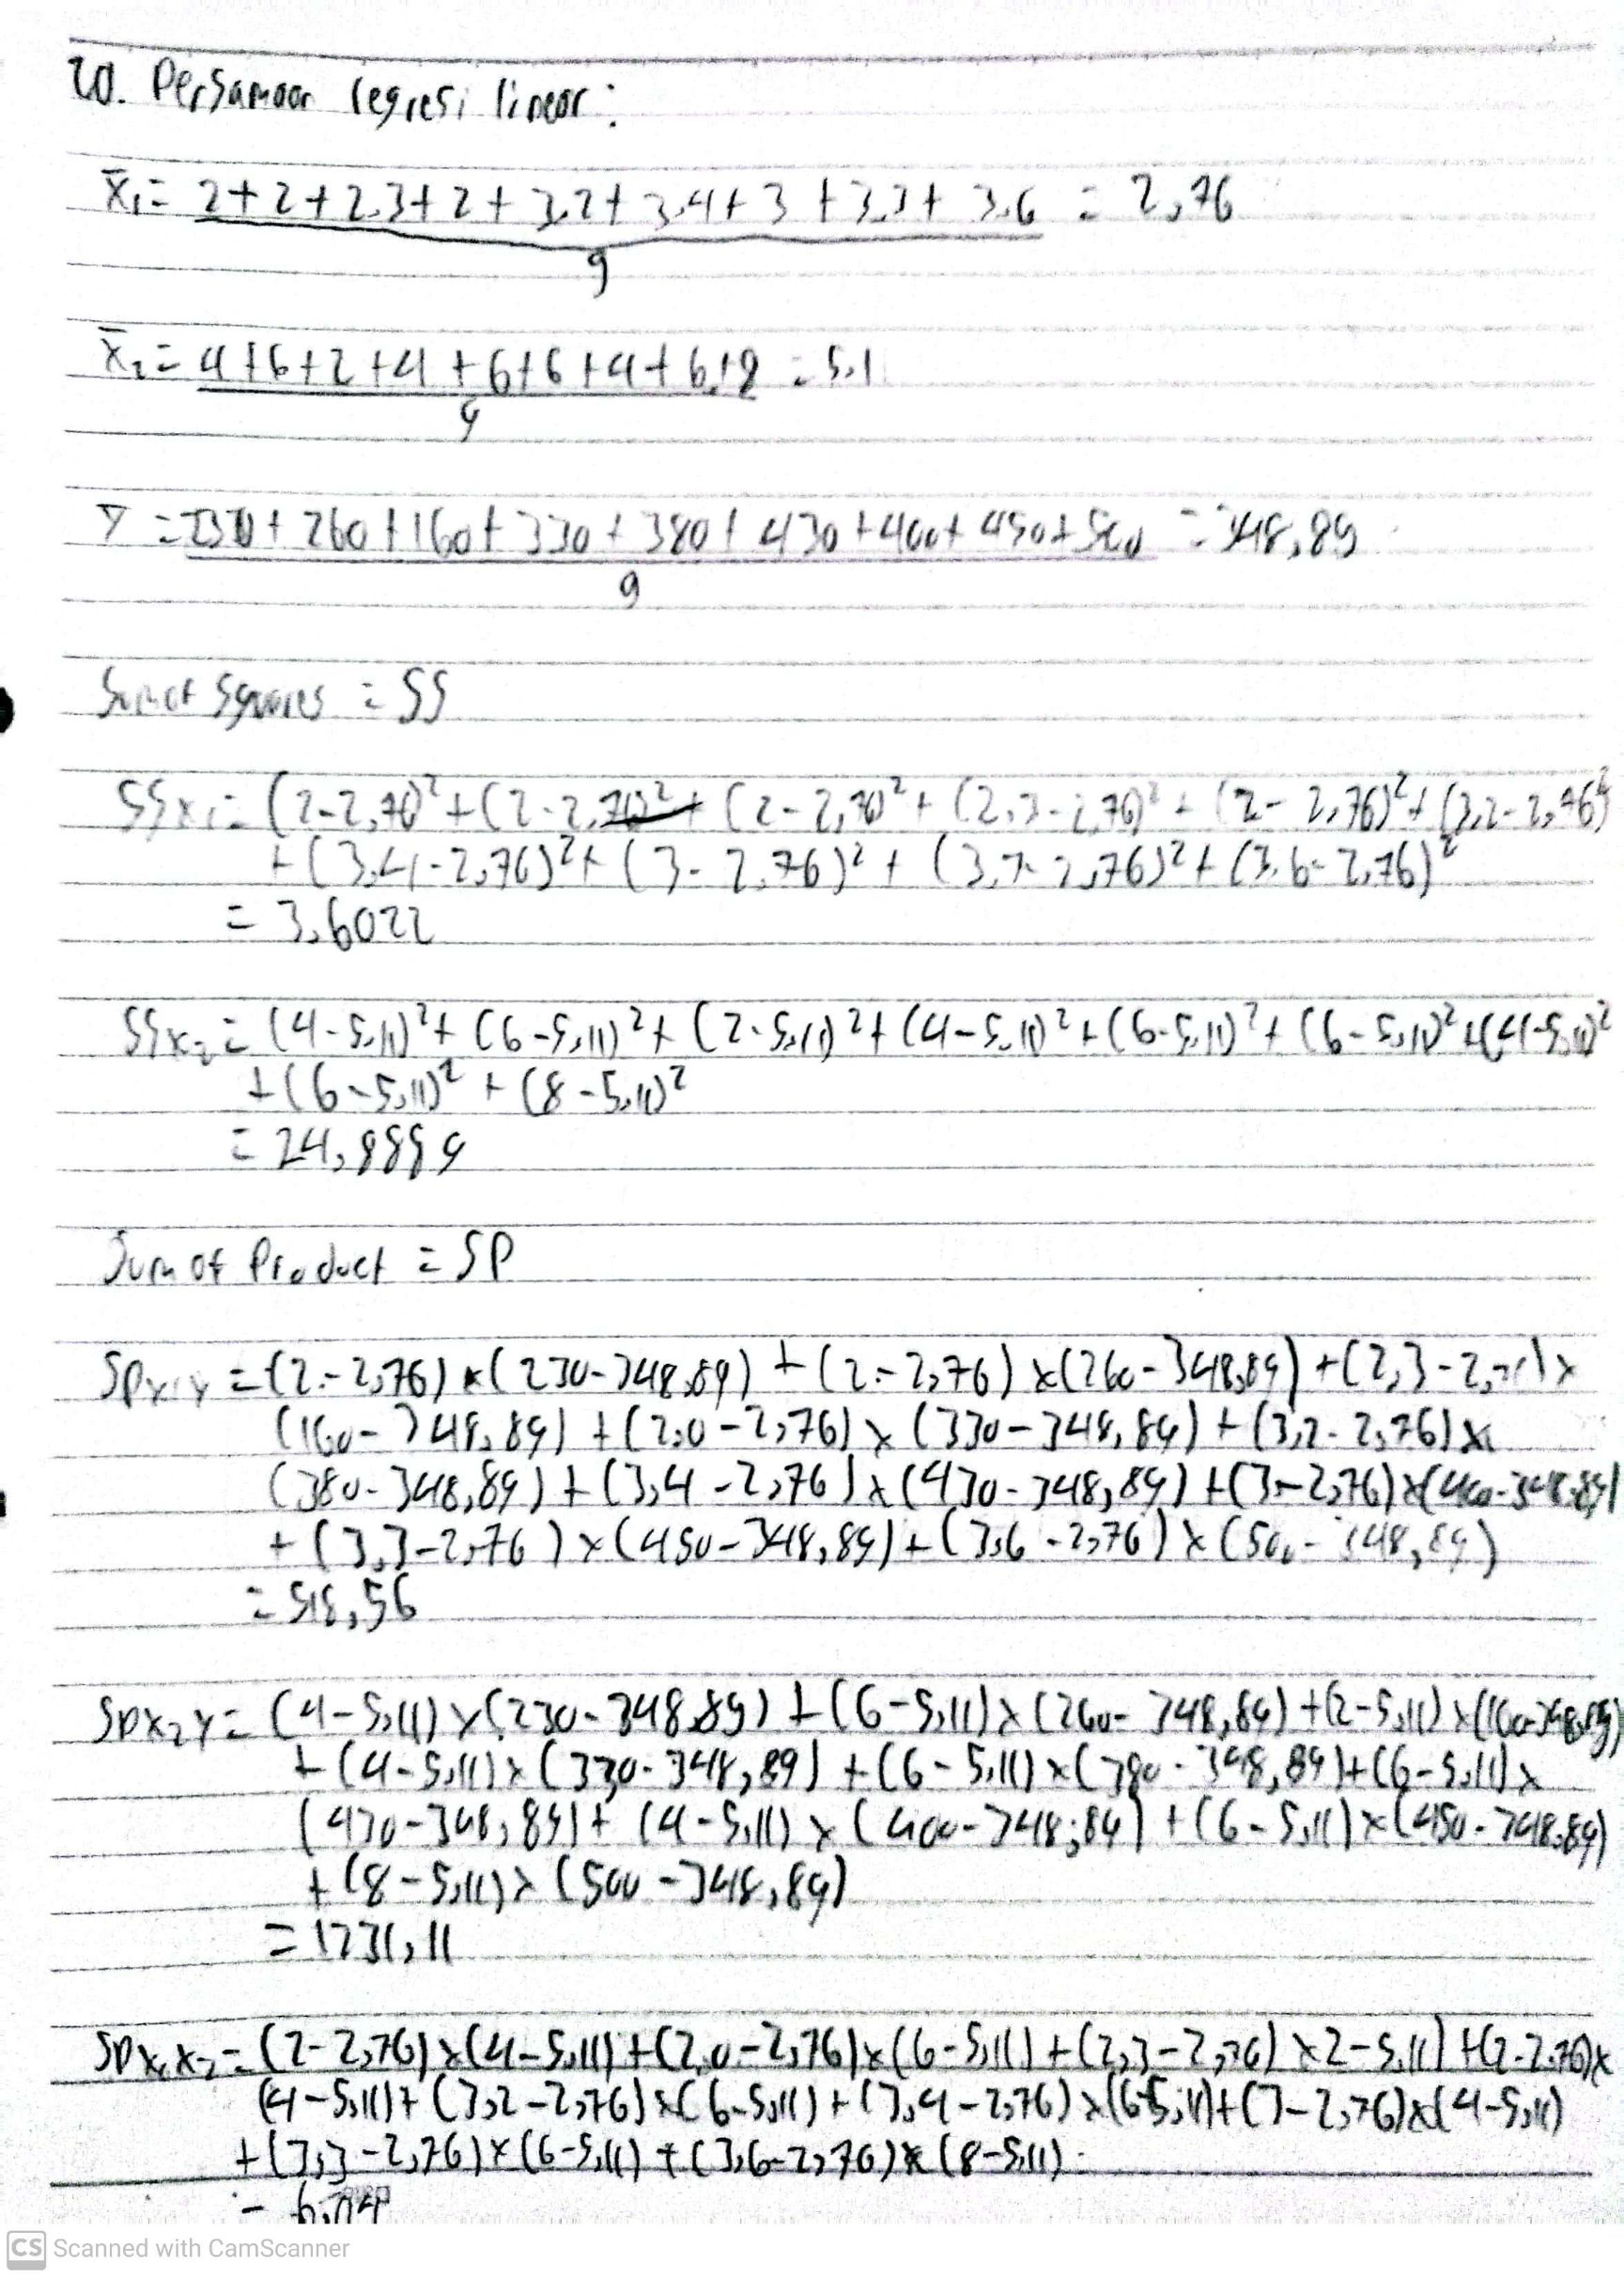 20. Persamaan regresi linear :
X̄₁ = 2 + 2 + 2.3 + 2 + 3.2 + 3.4 + 3 + 3.3 + 3.6 = 2,76
9
X̄₂ = 4 + 6 + 2 + 4 + 6 + 6 + 4 + 6 + 8 = 5.1
9
Ȳ = 230 + 260 + 160 + 330 + 380 + 430 + 400 + 450 + 500 = 348,89
9
Sum of Squares = SS
SSx₁ = (2-2,76)² + (2-2,76)² + (2-2,76)² + (2,3-2,76)² + (2-2,76)² + (3,2-2,76)²
+ (3,4-2,76)² + (3-2,76)² + (3,3-2,76)² + (3,6-2,76)²
= 3,6022
SSx₂ = (4-5,11)² + (6-5,11)² + (2-5,11)² + (4-5,11)² + (6-5,11)² + (6-5,11)² + (4-5,11)²
+ (6-5,11)² + (8-5,11)²
= 24,8889
Sum of Product = SP
SPx₁y = (2-2,76) x (230-348,89) + (2-2,76) x (260-348,89) + (2,3-2,76) x
(160-348,89) + (2,0-2,76) x (330-348,89) + (3,2-2,76) x
(380-348,89) + (3,4-2,76) x (430-348,89) + (3-2,76) x (400-348,89)
+ (3,3-2,76) x (450-348,89) + (3,6-2,76) x (500-348,89)
= 518,56
SPx₂y = (4-5,11) x (230-348,89) + (6-5,11) x (260-348,89) + (2-5,11) x (160-348,89)
+ (4-5,11) x (330-348,89) + (6-5,11) x (380-348,89) + (6-5,11) x
(430-348,89) + (4-5,11) x (400-348,89) + (6-5,11) x (450-348,89)
+ (8-5,11) x (500-348,89)
= 1231,11
SPx₁x₂ = (2-2,76) x (4-5,11) + (2,0-2,76) x (6-5,11) + (2,3-2,76) x 2-5,11) + (2-2,76) x
(4-5,11) + (3,2-2,76) x (6-5,11) + (3,4-2,76) x (6-5,11) + (3-2,76) x (4-5,11)
+ (3,3-2,76) x (6-5,11) + (3,6-2,76) x (8-5,11)
CS Scanned with CamScanner